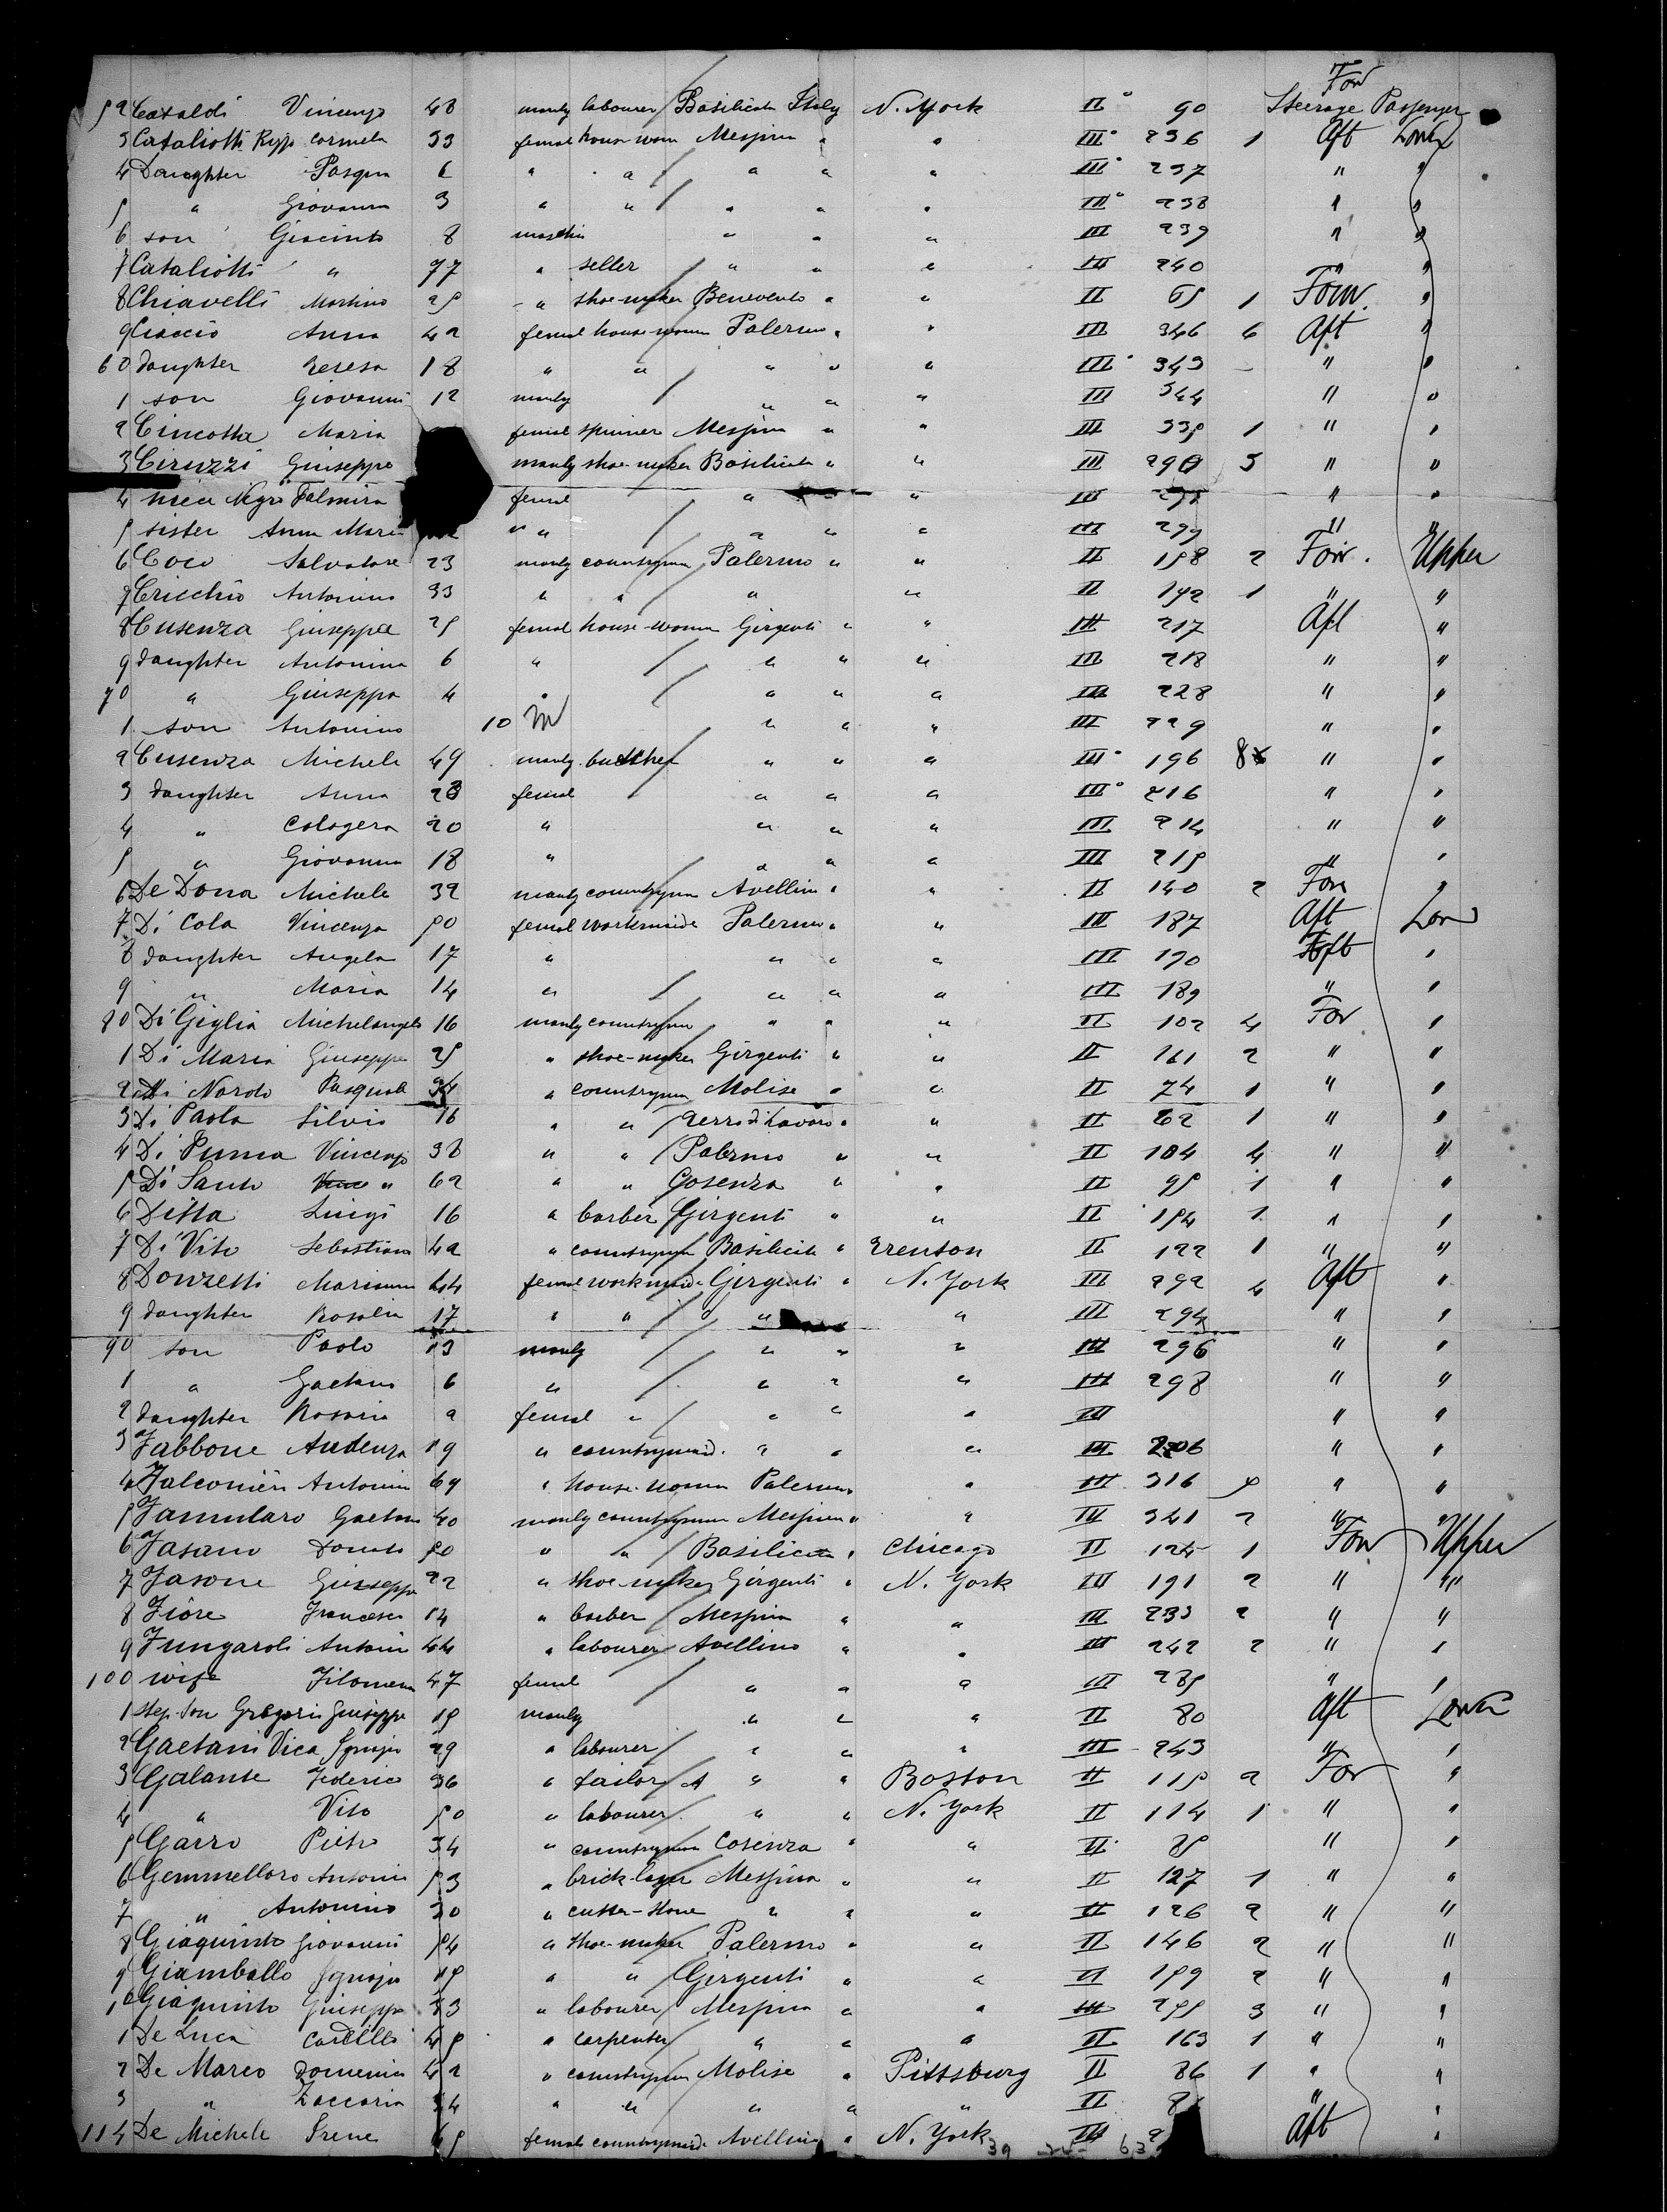 For
52 Cataldi Vincenzo 48 manly labourer Basilicata Italy N. York II° 90 Steerage Passenger
3 Cataliotti Rizzo Carmela 33 femal house-wom Messina " " III° 236 1 Aft Lower
4 Daughter Pasqua 6 " " " " " III° 237 " "
5 " Giovanna 3 " " " " " III° 238 " "
6 son Giacinto 8 " " " III 239 " "
7 Cataliotti " 77 " seller " " " III 240 " "
8 Chiavelli Martino 25 " shoe-maker Benevento " " II 65 1 Forw. "
9 Ciaccio Anna 42 femal house-woman Palermo " " III 346 6 Aft "
60 daughter Teresa 18 " " " " " III° 343 " "
1 son Giovanni 12 manly " " " III 344 " "
2 Cincotta Maria femal spinner Messina " " III 335 1 " "
3 Ciruzzi Giuseppe manly shoe-maker Basilicata " " III 290 3 " "
4 niece Negri Palmira femal " " III " "
5 sister Anna Maria " " " " " III 299 " "
6 Coco Salvatore 23 manly countryman Palermo " " II 158 2 Forw. Upper
7 Cricchio Antonino 33 " " " " II 142 1 " "
8 Cusenza Giuseppa 25 femal house-woman Girgenti " " III 217 Aft "
9 daughter Antonina 6 " " " " III 218 " "
70 " Giuseppa 4 " " " " III 228 " "
1 son Antonino 10 M " " " III 229 " "
2 Cusenza Michele 49 manly butcher " " " III° 196 8 " "
3 daughter Anna 23 femal " " " III° 216 " "
4 " Calogera 20 " " " " III 214 " "
5 " Giovanna 18 " " " " III 215 " "
6 De Dona Michele 32 manly countryman Avellino " " II 140 2 For "
7 Di Cola Vincenza 50 femal workmaide Palermo " " III 187 Aft Low
8 daughter Angela 17 " " " " III 190 Aft "
9 " Maria 14 " " " " III 189 " "
80 Di Giglia Michelangelo 16 manly countryman " " " II 102 4 For "
1 Di Maria Giuseppe 25 " shoe-maker Girgenti " " II 161 2 " "
2 Di Nardo Pasquale 34 " countryman Molise " " II 74 1 " "
3 Di Paola Silvio 16 " " Terra di Lavoro " " II 62 1 " "
4 Di Puma Vincenzo 38 " " Palermo " " II 104 4 " "
5 Di Santo " 62 " " Cosenza " " II 95 1 " "
6 Ditta Luigi 16 " barber Girgenti " " II 154 1 " "
7 Di Vito Sebastiano 42 " countryman Basilicata " Trenton II 122 1 " "
8 Donzetti Marianna 44 femal workmaide Girgenti " N. York III 292 4 Aft "
9 daughter Rosalia 17 " " " " III 294 " "
90 son Paolo 13 manly " " " III 296 " "
1 " Gaetano 6 " " " " III 298 " "
2 daughter Rosaria 2 femal " " " " III " "
3 Fabbone Audenza 19 " countrymaid. " " " III 206 " "
4 Falconieri Antonin 69 " house-woman Palermo " " III 316 5 " "
5 Famularo Gaetano 40 manly countryman Messina " " III 341 2 " "
6 Fasano Donato 50 " " Basilicata " Chicago II 124 1 Forw Upper
7 Fasone Giuseppe 22 " shoe-maker Girgenti " N. York III 191 2 " "
8 Fiore Francesco 14 " barber Messina " " III 233 2 " "
9 Fungaroli Antonin 44 " labourer Avellino " " III 242 2 " "
100 wife Filomena 47 femal " " " III 285 " "
1 step-son Gregorio Giuseppe 15 manly " " " II 80 Aft Lower
2 Gaetani Vica Ignazio 29 " labourer " " " III 243 " "
3 Galante Federico 36 " tailor " " Boston II 115 2 For "
4 " Vito 50 " labourer " " N. York II 114 1 " "
5 Garro Pietro 34 " countryman Cosenza " " II 85 " "
6 Gemmellaro Antonin 53 " brick-layer Messina " " II 127 1 " "
7 " Antonino 30 " cutter-stone " " " II 126 2 " "
8 Giaquinto Giovanni 54 " shoe-maker Palermo " " II 146 2 " "
9 Giamballo Ignazio 15 " " Girgenti " " II 159 2 " "
10 Giaquinto Giuseppe 33 " labourer Messina " " III 255 3 " "
1 De Luca 45 " carpenter " " " II 163 1 " "
2 De Marco Domenico 42 " countryman Molise " Pittsburg II 86 1 " "
3 " Zaccaria 34 " " " " " II 8 " "
114 De Michele Irene 65 femal countrymaide Avellino " N. York III 2 Aft "
39 63